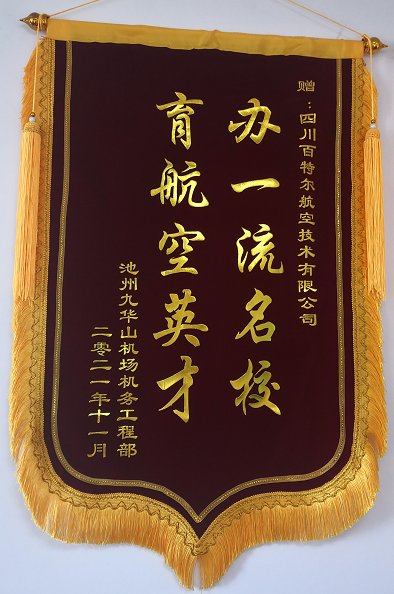 赠：四川百特尔航空技术有限公司
办一流名校
育航空英才
池州九华山机场机务工程部
二零二一年十一月